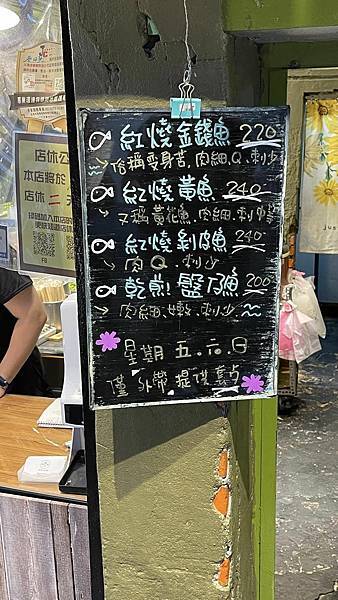 紅燒金錢魚 220
俗稱變身苦,肉細、Q、刺少
紅燒黃魚 240
又稱黃花魚,肉細、刺中等
紅燒剝皮魚 240
肉Q、刺少
乾煎盤仔魚 200
肉細、嫩、刺少
星期五、六、日
僅外帶提供
店休公
本店將於
店休二天
FB
jus